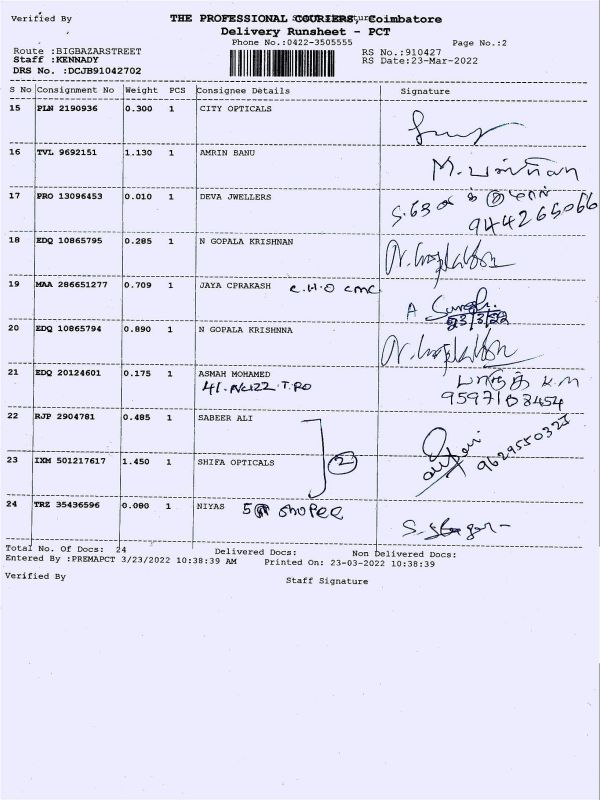 Verified By
THE PROFESSIONAL COURIERS, Coimbatore
Delivery Runsheet - PCT
Phone No.:0422-3505555
Page No.:2
Route :BIGBAZARSTREET
RS No.:910427
Staff :KENNADY
RS Date:23-Mar-2022
DRS No. :DCJB91042702
S No Consignment No Weight PCS Consignee Details Signature
15 PLN 2190936 0.300 1 CITY OPTICALS
16 TVL 9692151 1.130 1 AMRIN BANU
M.
17 PRO 13096453 0.010 1 DEVA JWELLERS
944265066
18 EDQ 10865795 0.285 1 N GOPALA KRISHNAN
19 MAA 286651277 0.709 1 JAYA CPRAKASH C.H.O CMC
A
23/3/22
20 EDQ 10865794 0.890 1 N GOPALA KRISHNNA
21 EDQ 20124601 0.175 1 ASMAH MOHAMED
22 RJP 2904781 0.485 1 SABEER ALI
9629550325
23 IXM 501217617 1.450 1 SHIFA OPTICALS 2
24 TRZ 35436596 0.080 1 NIYAS SHOPEE
Total No. Of Docs: 24 Delivered Docs: Non Delivered Docs:
Entered By :PREMAPCT 3/23/2022 10:38:39 AM Printed On: 23-03-2022 10:38:39
Verified By Staff Signature